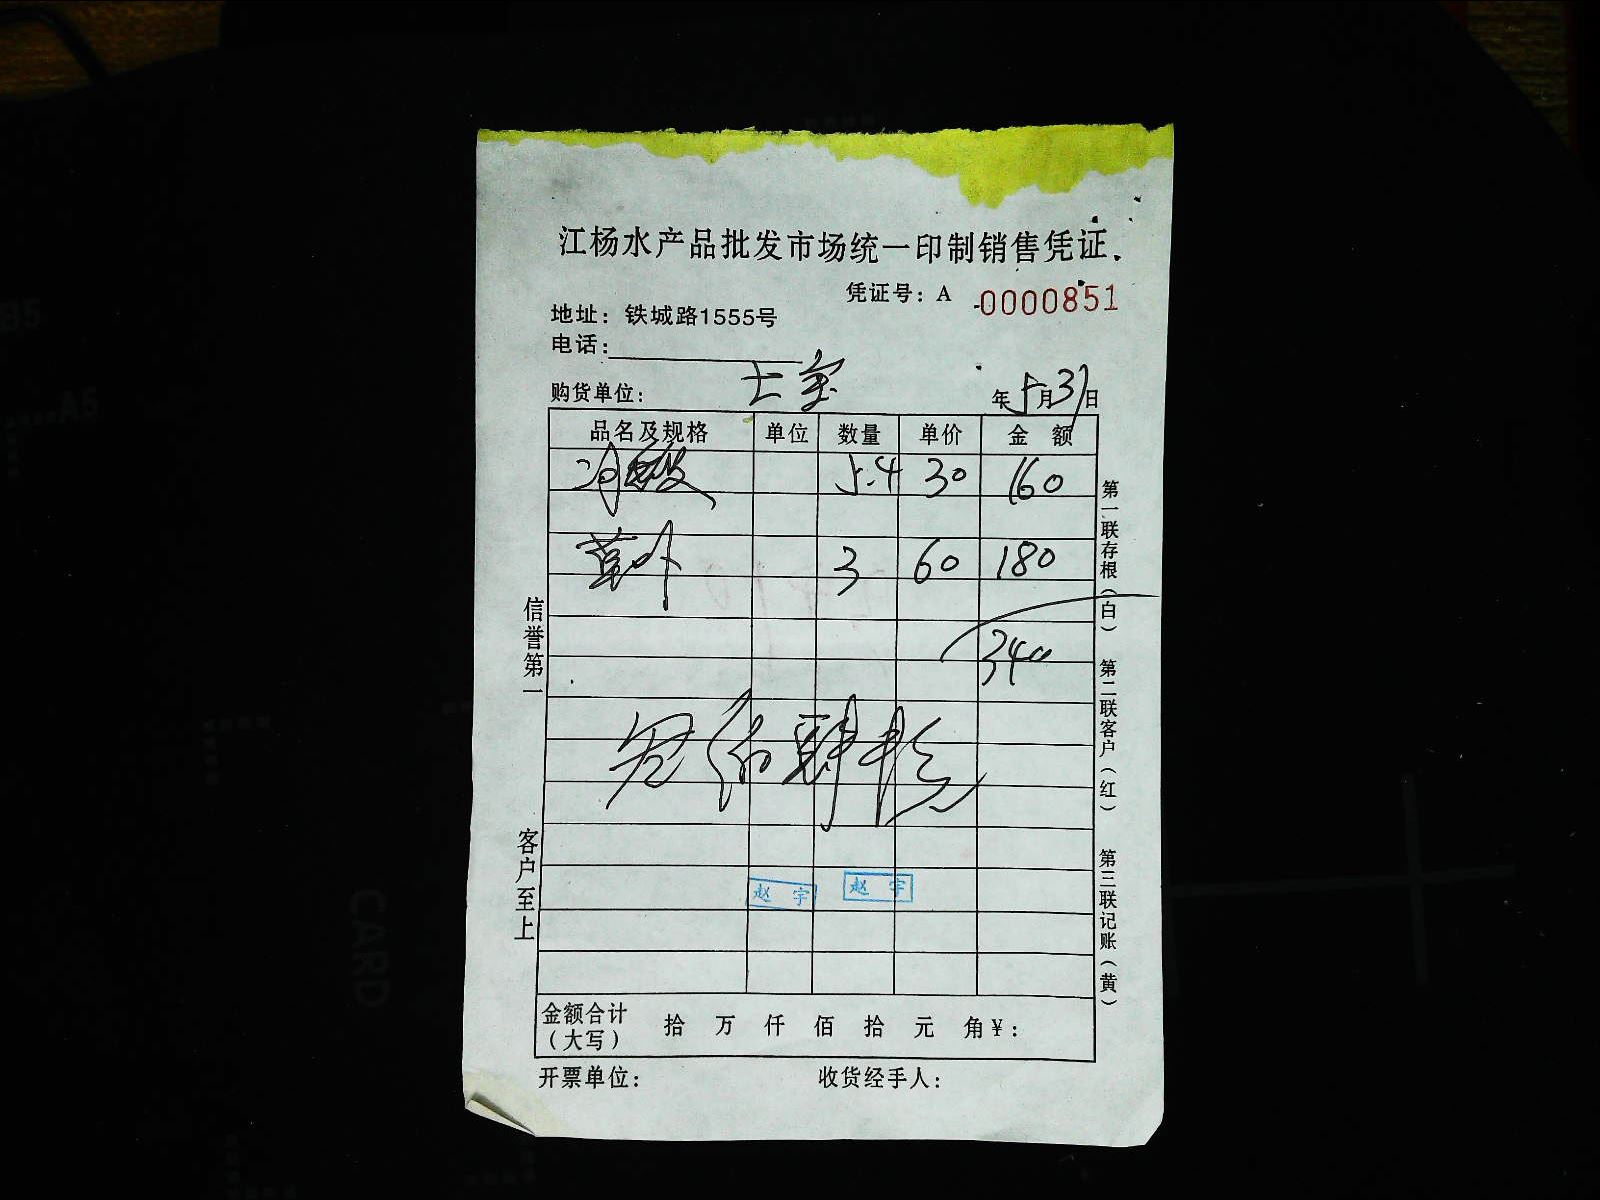 江杨水产品批发市场统一印制销售凭证
凭证号：A 0000851
地址：铁城路1555号
电话：
购货单位： 年5月31日
品名及规格 单位 数量 单价 金额
5.4 30 160
草 3 60 180
340
叁佰肆拾元
赵宇 赵宇
金额合计（大写） 拾 万 仟 佰 拾 元 角 ¥：
开票单位： 收货经手人：
信誉第一
客户至上
第一联存根（白）
第二联客户（红）
第三联记账（黄）
B5
A5
CARD